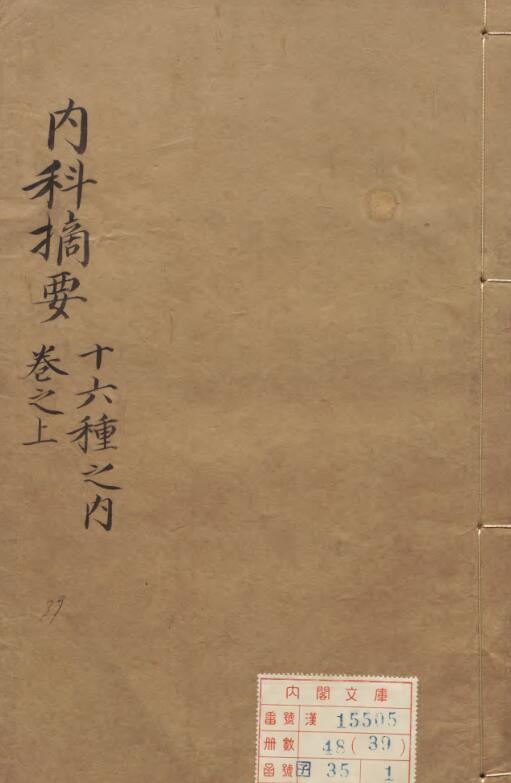 内科摘要
十六種之内
卷之上
39
内閣文庫
番號 漢 15505
冊數 48(39)
函號 子 35 1